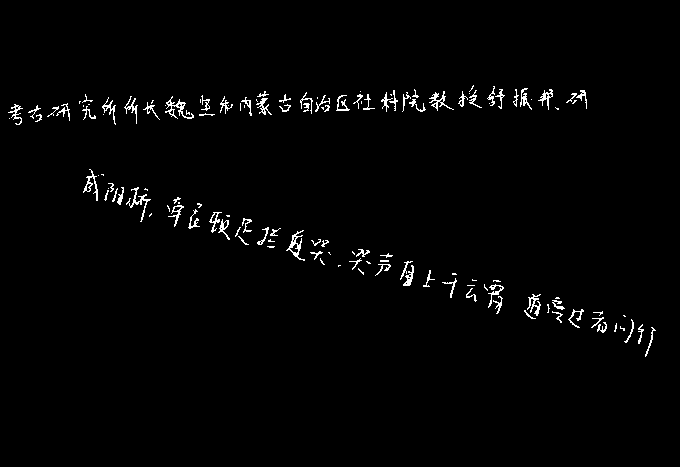 考古研究所所长魏坚和内蒙古自治区社科院教授舒振邦、研
咸阳桥,牵衣顿足拦道哭,哭声直上干云霄 道旁过者问行